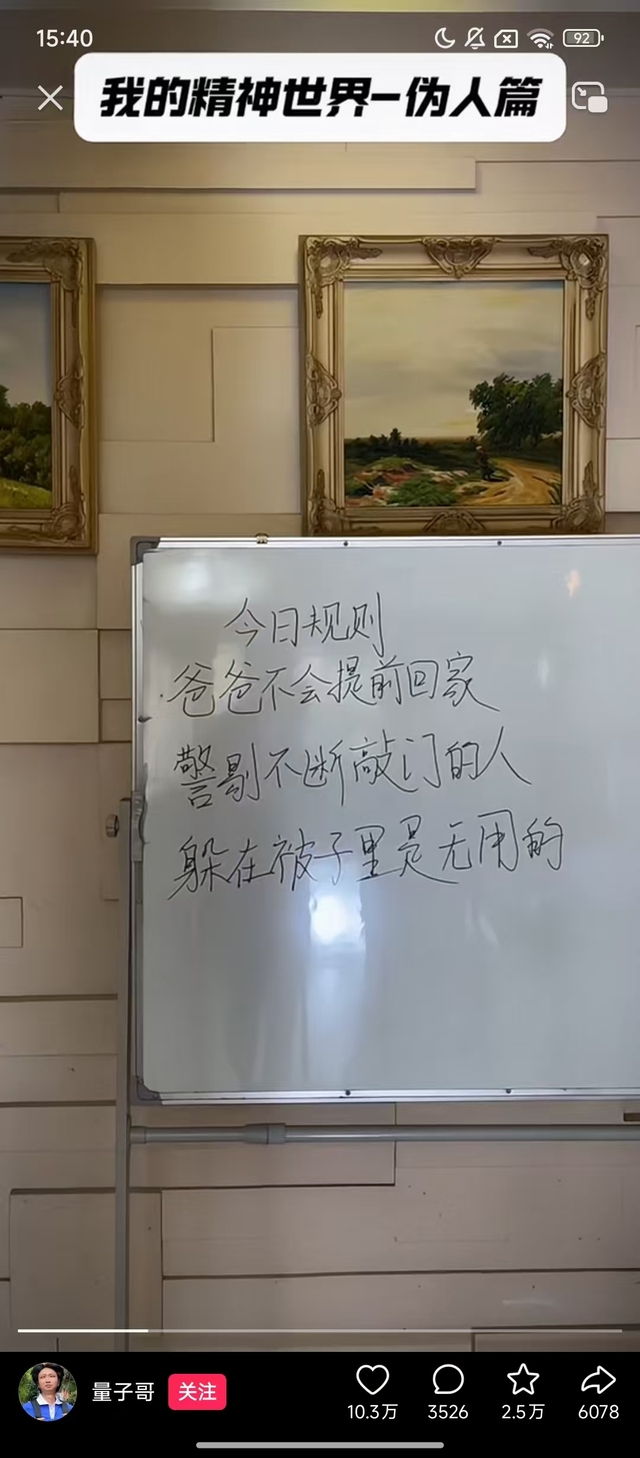 15:40
92
我的精神世界-伪人篇
今日规则
爸爸不会提前回家
警剔不断敲门的人
躲在被子里是无用的
量子哥
关注
10.3万
3526
2.5万
6078